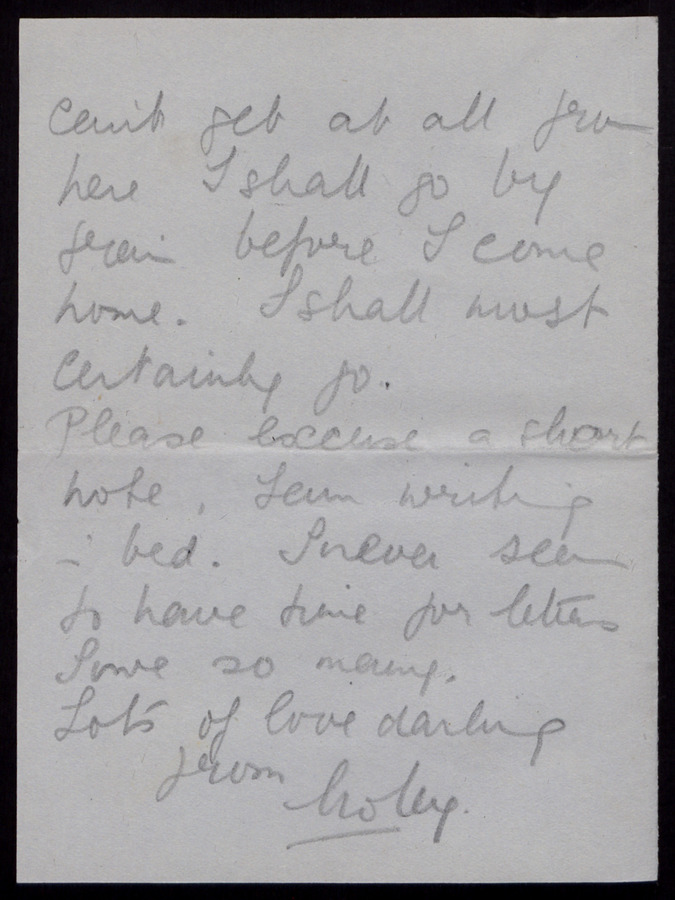 can't get at all from
here I shall go by
train before I come
home. I shall most
certainly go.
Please excuse a short
note, I am writing
in bed. I never seem
to have time for letters
I owe so many.
Lots of love darling
from